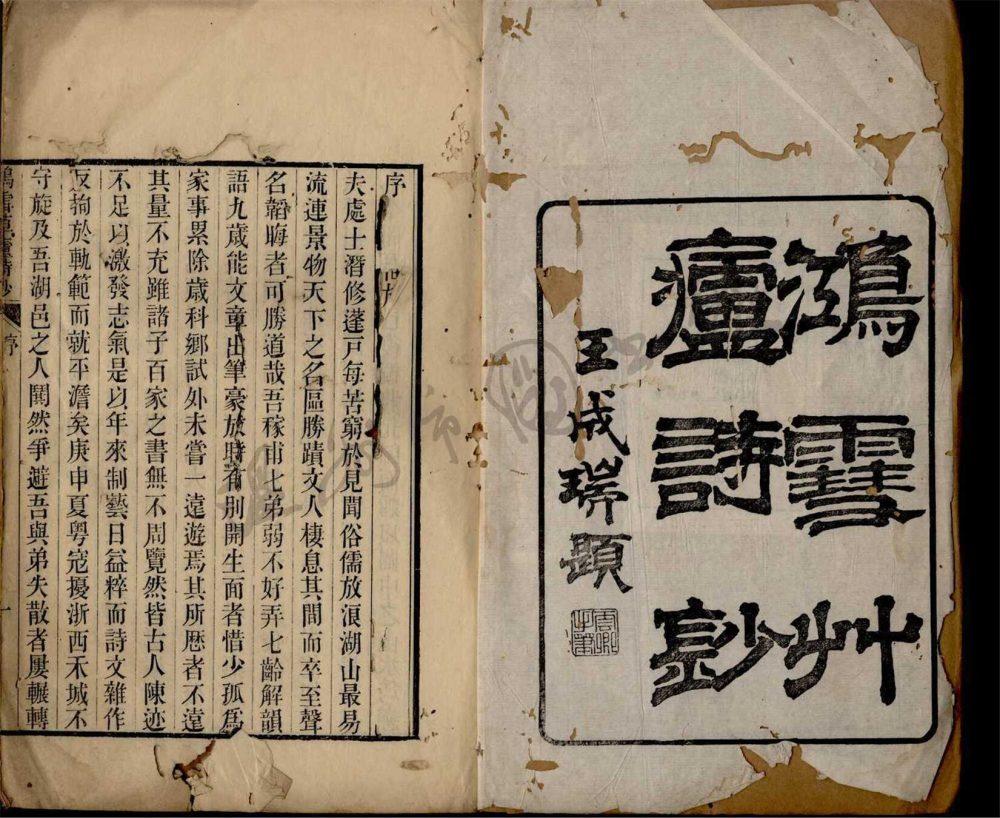 鴻䨮艸
廬詩鈔
王成瑞題
序
夫處士潛修蓬戸每苦窮於見聞俗儒放浪湖山最易
流連景物天下之名區勝蹟文人棲息其間而卒至聲
名韜晦者可勝道哉吾稼甫七弟弱不好弄七齡解韻
語九歲能文章出筆豪放時有別開生面者惜少孤爲
家事累除歲科鄉試外未嘗一遠遊焉其所歷者不遠
其量不充雖諸子百家之書無不周覽然皆古人陳迹
不足以激發志氣是以年來制藝日益粹而詩文雜作
反拘於軌範而就平澹矣庚申夏粵寇擾浙西禾城不
守旋及吾湖邑之人鬨然爭避吾與弟失散者屢輾轉
序
一